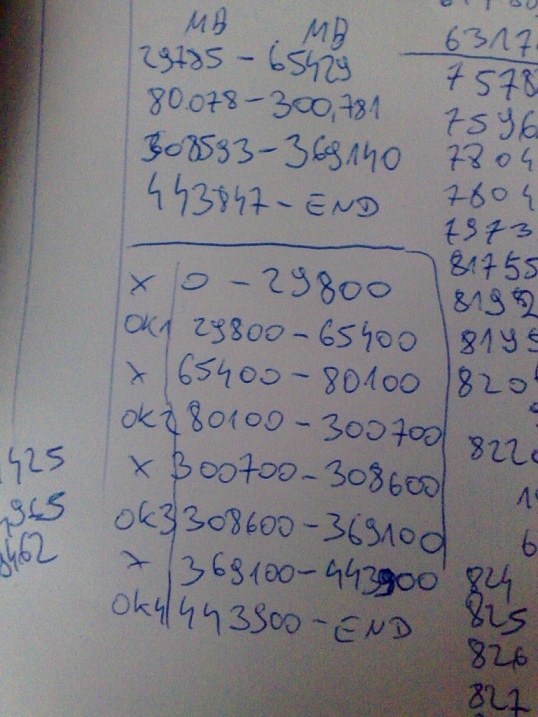 MB MB
29785 - 65429
80.078 - 300,781
308593 - 369140
443847 - END
x 0 - 29800
OK1 29800 - 65400
x 65400 - 80100
OK2 80100 - 300700
x 300700 - 308600
OK3 308600 - 369100
x 369100 - 443900
OK4 443900 - END
425
965
462
6317
7578
7596
7804
7804
7973
81755
8192
8195
820
822
1
6
824
825
826
827